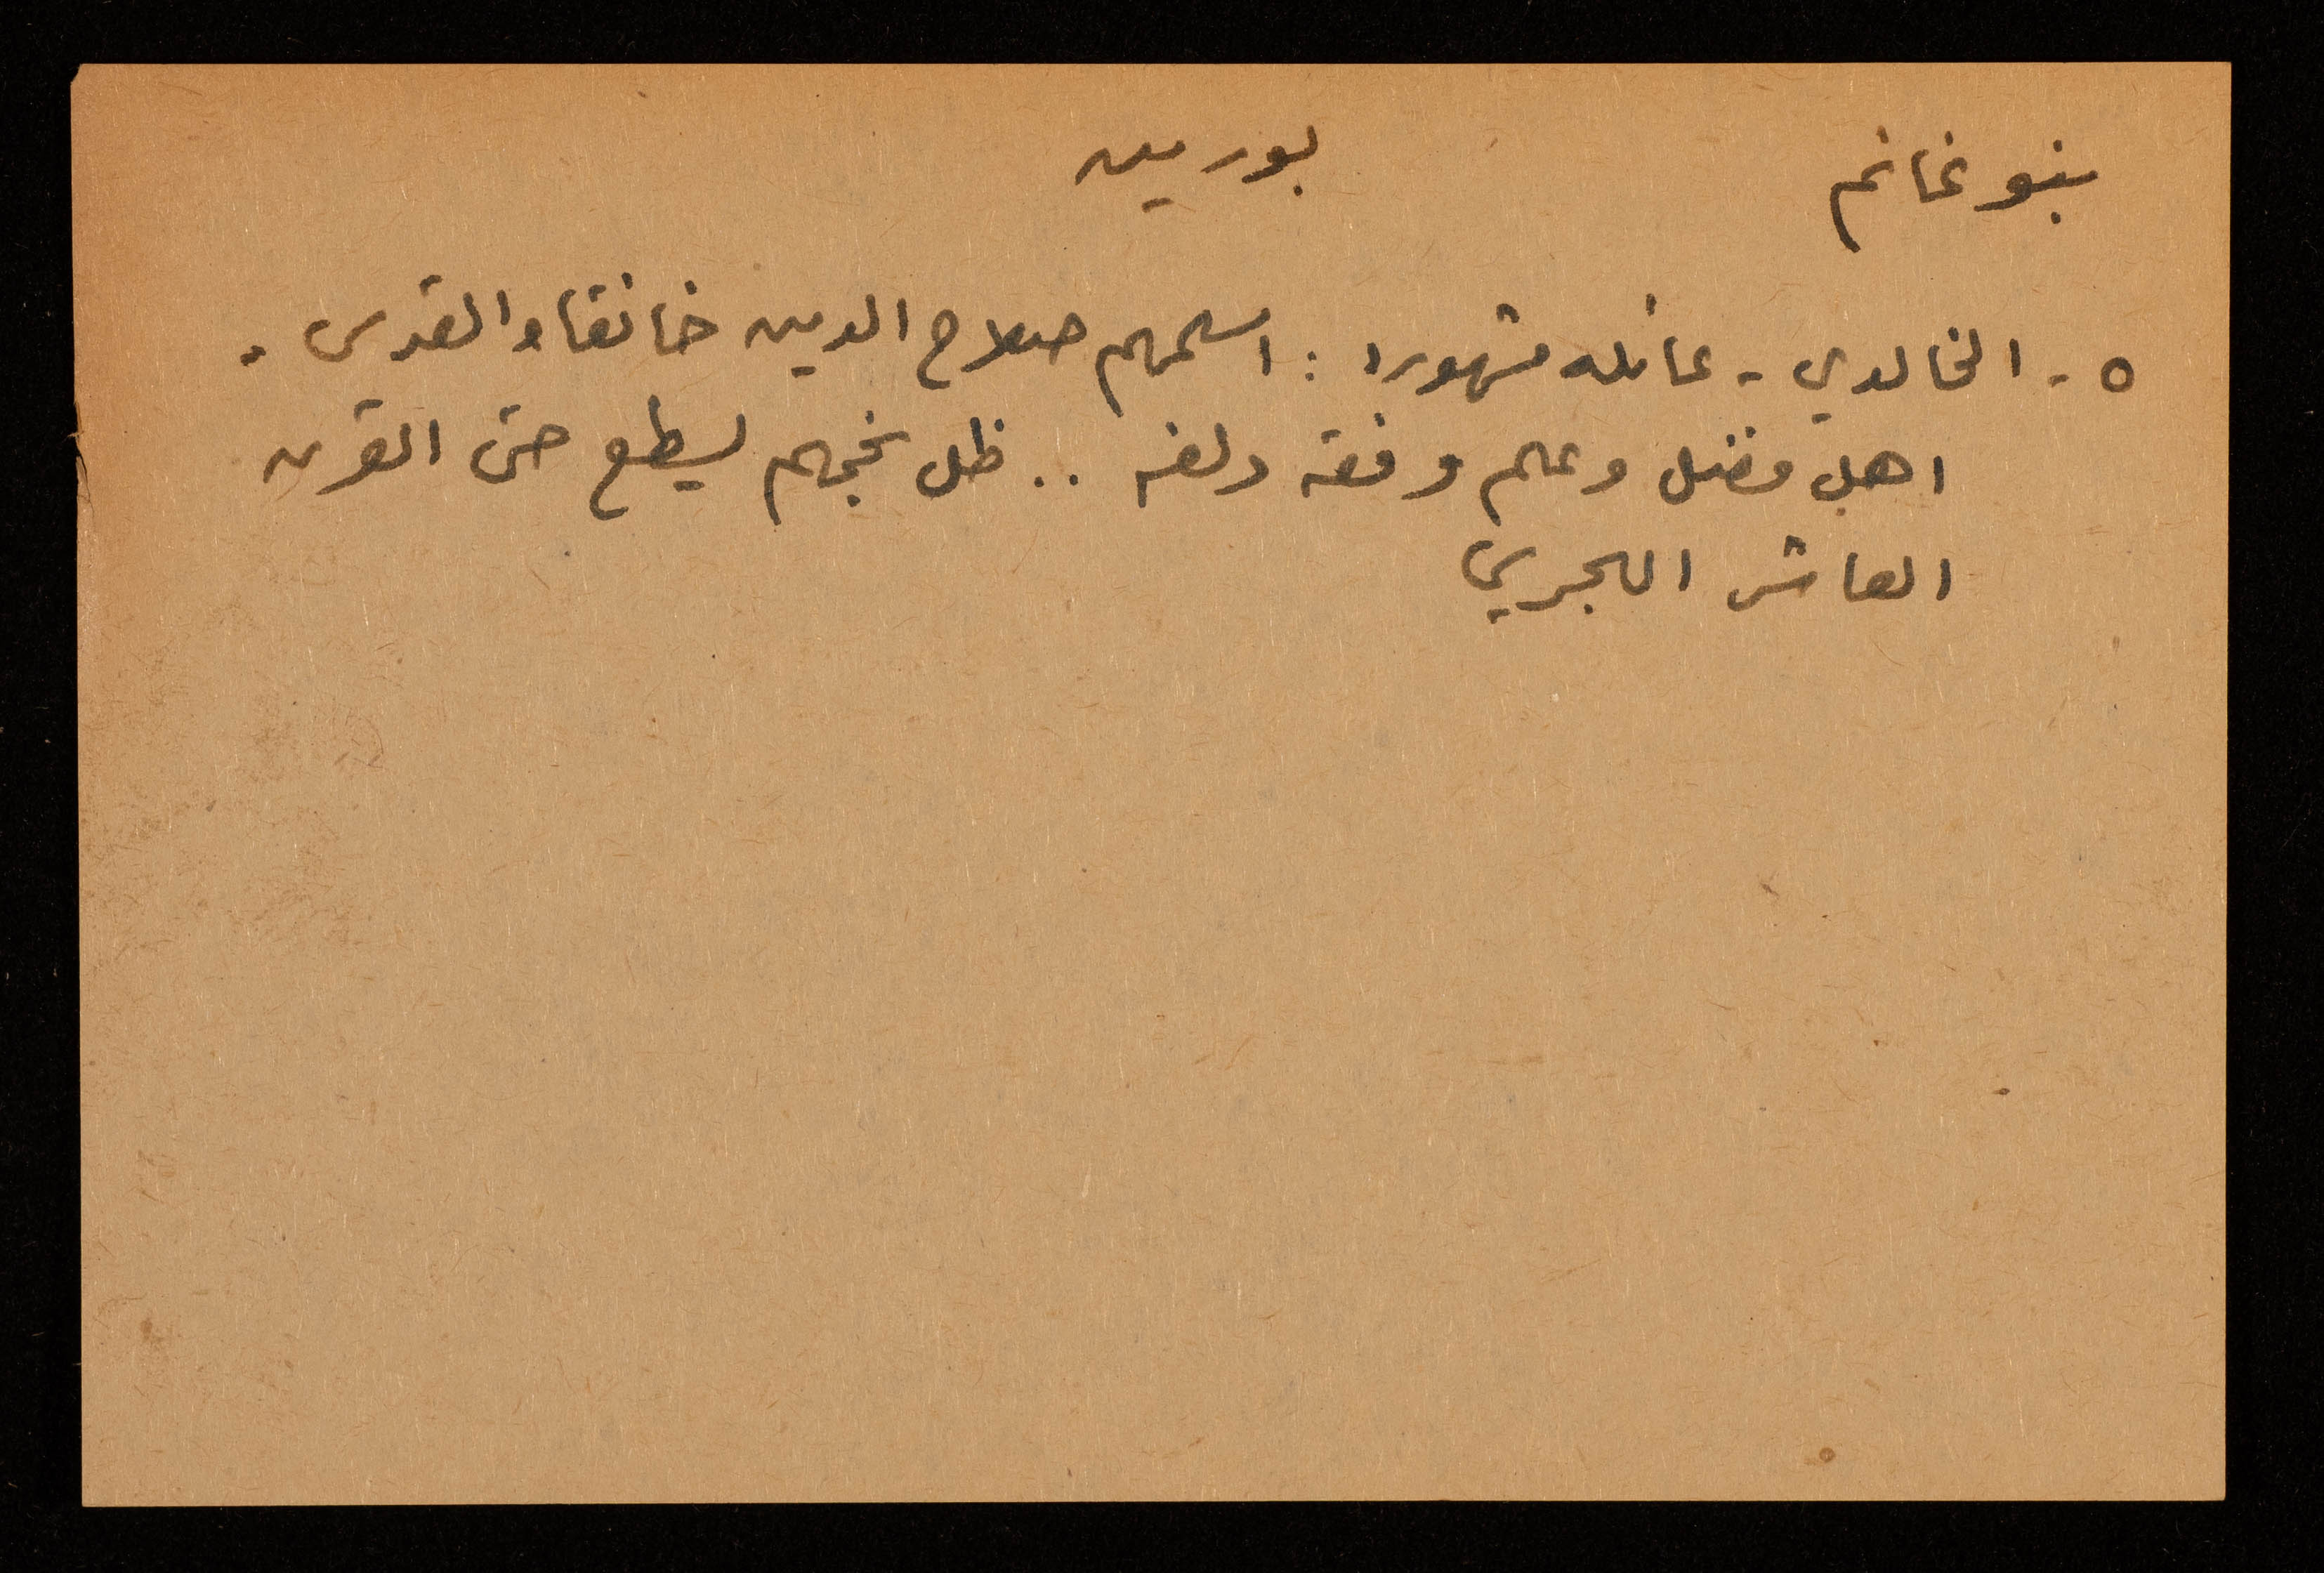 بنو غانم بورين
٥ - الخالدي - عائله مشهوره : اسلمهم صلاح الدين خانقاه القدس .
اهل فضل وعلم وفقه ولغه .. ظل نجمهم يسطع حتى القرن
العاشر الهجري